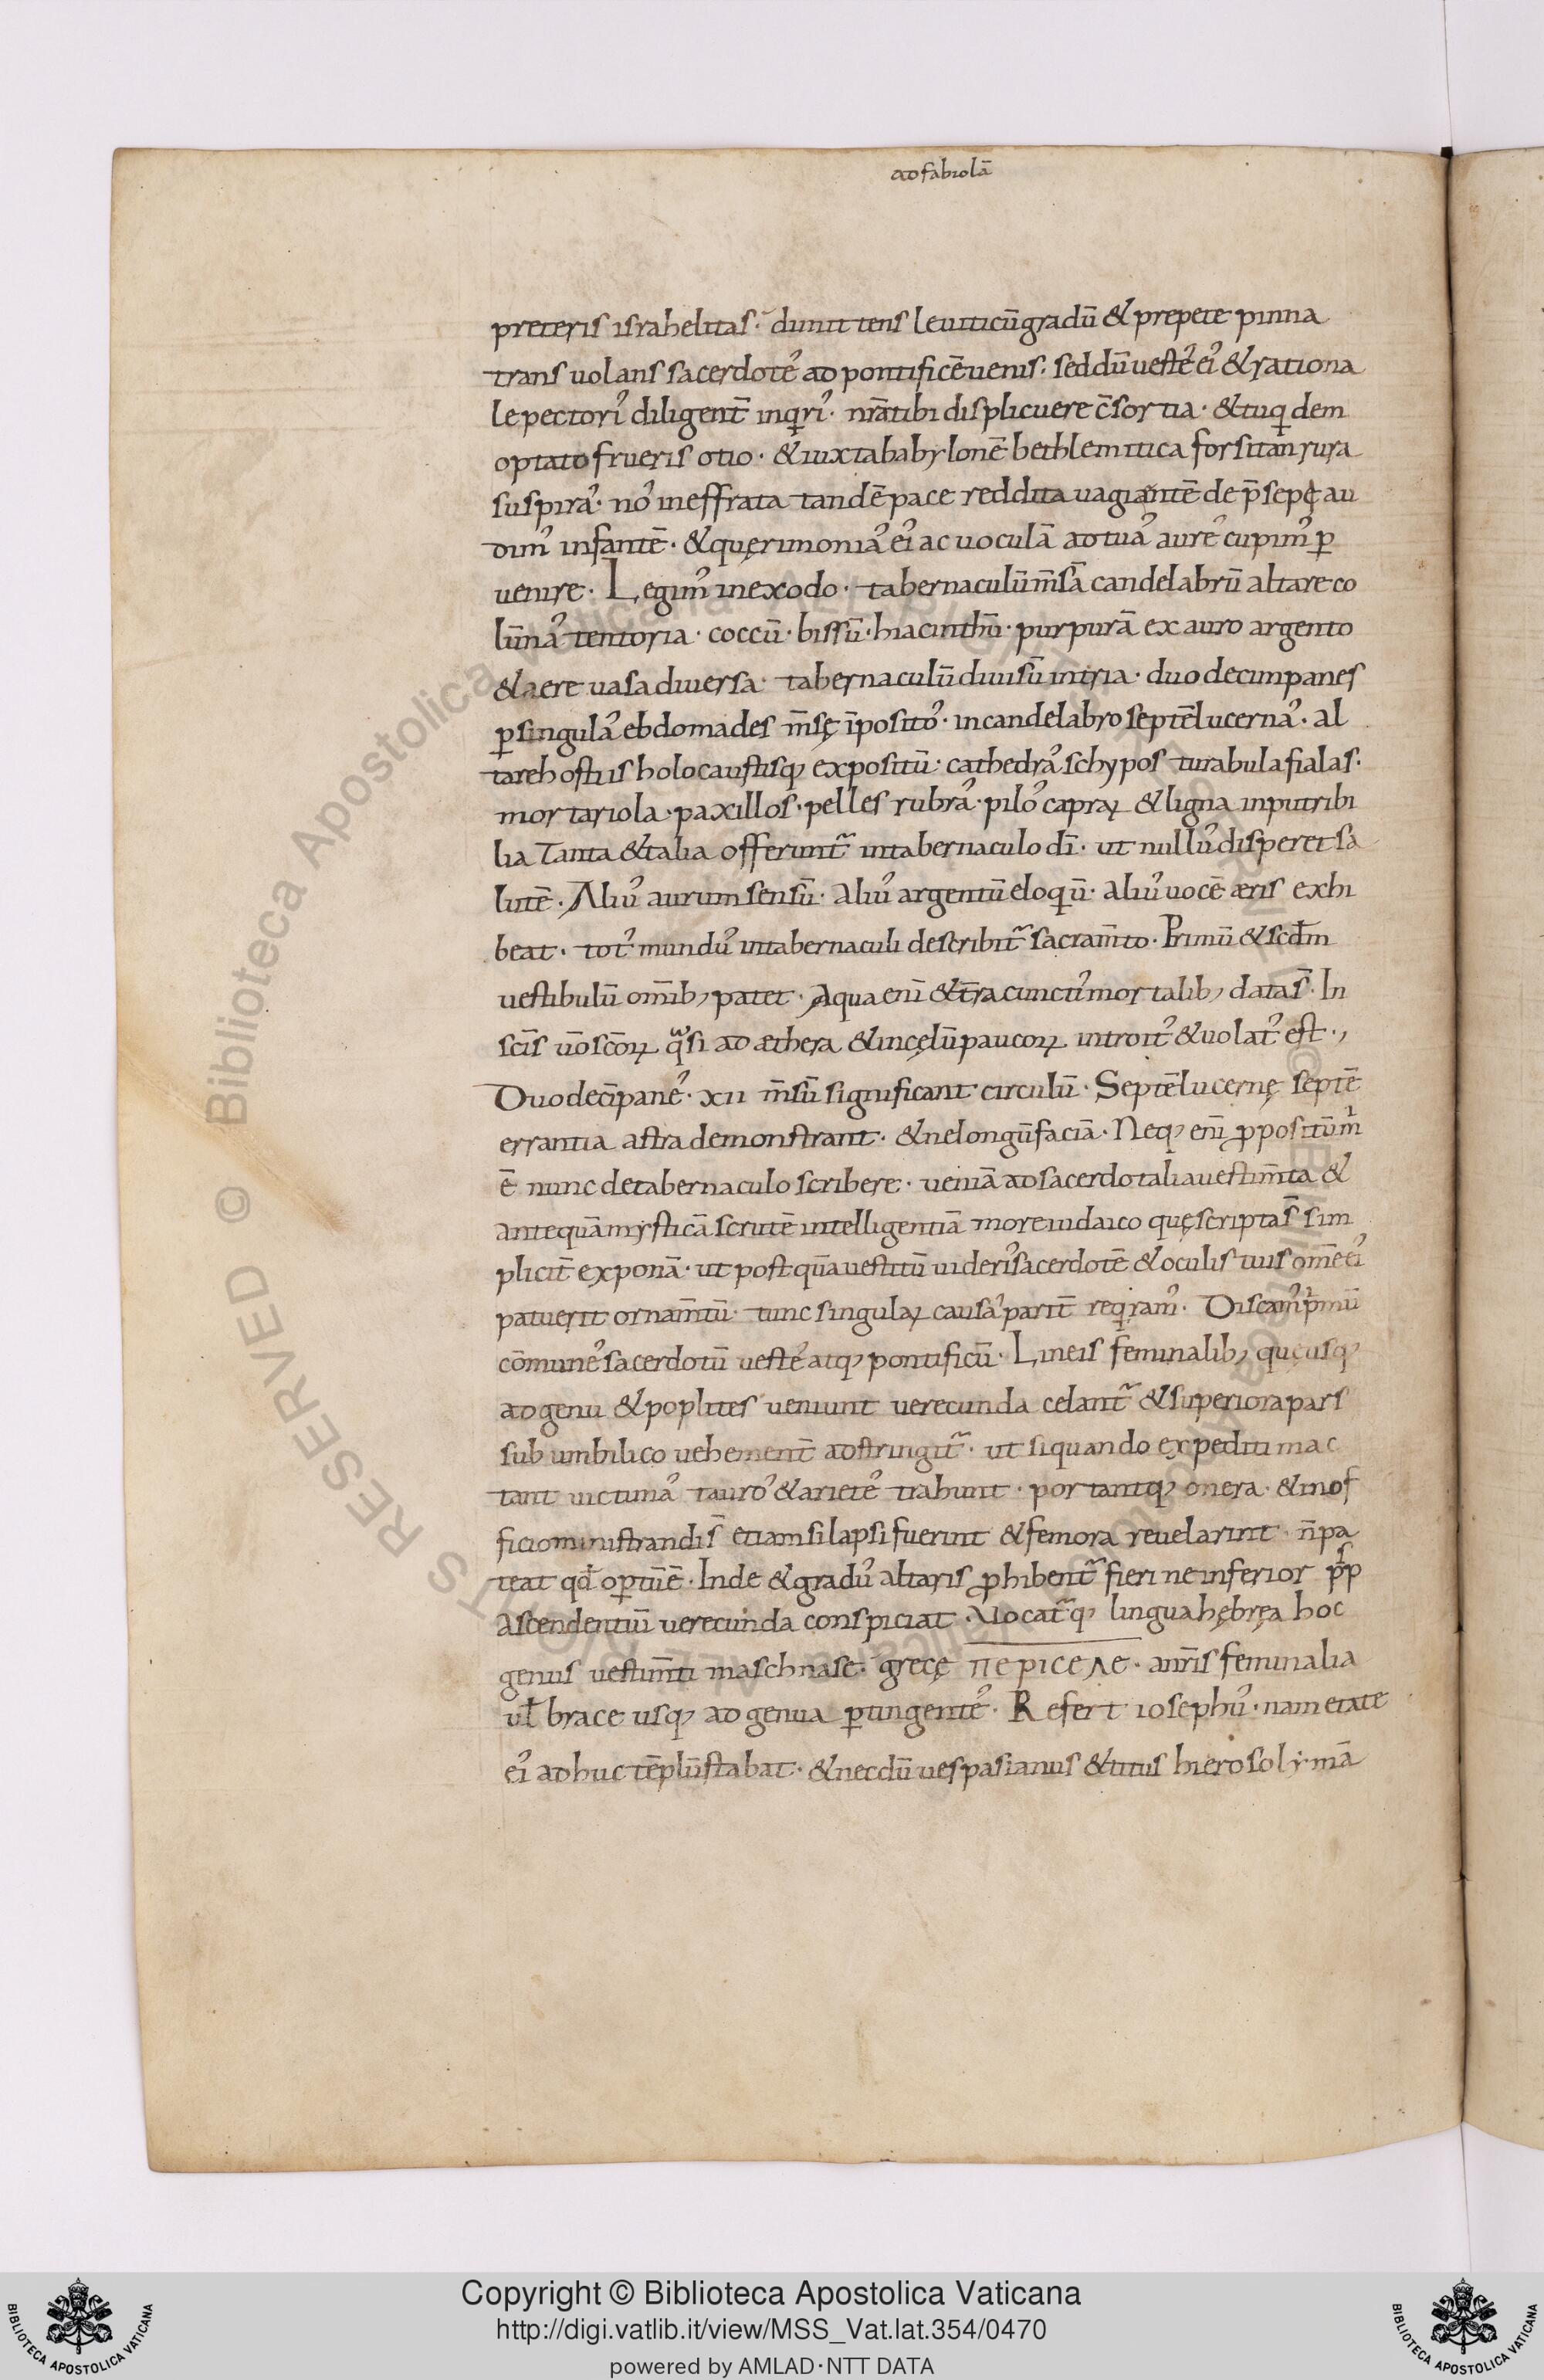 ad fabiolā
preteris israhelitas. dimittens leuiticū gradū & prepete pinna
trans uolans sacerdoteʼ ad pontificē uenis. sed dū uesteʼ eiʼ & rationa
le pectoriʼ diligent̄ inqiriʼ. nr̄a tibi displicuere c̄sortia. & tu qidem
optato frueris otio. & iuxta babylonē bethlemitica forsitan rura
suspiraʼ. noʼ in effrata tandē pace reddita uagiantē de p̄sepę au
dimʼ infantē. & quęrimoniaʼ eiʼ ac uoculā ad tuaʼ aurēʼ cupimʼ ꝑ
uenire. Legimʼ in exodo. tabernaculū m̄sā candelabrū altare co
lūnaʼ tentoria. coccū. bissū. hiacinthū. purpurā ex auro argento
& aere uasa diuersa. tabernaculū diuisū in tria. duodecim panes
ꝑ singulaʼ ebdomades m̄sę īpositoʼ. in candelabro septē lucernaʼ. al
tare hostiis holocaustisq; expositū. cathedraʼ schypos turabula fialas.
mortariola. paxillos. pelles rubraʼ. piloʼ capraꝝ & ligna inputribi
lia Tanta & talia offerunt᷑ in tabernaculo dī. ut nulluʼ disperet sa
lutē. Aliuʼ aurum sensū. aliuʼ argentū eloqiū. aliuʼ uocē æris exhi
beat. totʼ munduʼ in tabernaculi describit᷑ sacram̄to. Primū & scd̄m
uestibulū om̄ib; patet. Aqua enī & t̄ra cunctiʼ mortalib; data s̄. In
scīs ūo scōꝝ qͣsi ad æthera & in cęlū paucoꝝ introitʼ & uolatʼ est.,
Duodecī paneʼ. xii m̄siū significant circulū. Septē lucernę septē
errantia astra demonstrant. & ne longū faciā. Neq; enī ꝓpositū m̄
ē nunc de tabernaculo scribere. ueniā ad sacerdotalia uestim̄ta &
antequā mysticā scrutē intelligentiā more iudaico quę scripta s̄ sim
plicit̄ exponā. ut postqūa uestitū uideriʼ sacerdotē & oculis tuis om̄e eiʼ
patuerit ornam̄tū. tunc singulaꝝ causaʼ parit̄ reqiramʼ. Discamʼ pimū
cōmuneʼ sacerdotū uesteʼ atq; pontificū. Lineis feminalib; quę usq;
ad genu & poplites ueniunt uerecunda celant᷑ & superiora pars
sub umbilico uehement̄ adstringit᷑. ut si quando expediti mac
tant uictimaʼ tauroʼ & arieteʼ trahunt. portantq; onera. & in of
ficio ministrandi s̄ etiam si lapsi fuerint & femora reuelarint. n̄ pa
teat qd̄ optū ē. Inde & graduʼ altaris ꝓhibent᷑ fieri ne inferior pp̄ls
ascendentiū uerecunda conspiciat. Vocat᷑q; lingua hębręa hoc
genus uestim̄ti maschnase. grecę περιϲελε. a nr̄is feminalia
ul̄ brace usq; ad genua ꝑtingenteʼ. Refert iosephuʼ. nam etate
eiʼ adhuc tēplū stabat. & necdū uespasianus & titus hierosolymā
Copyright © Biblioteca Apostolica Vaticana
http://digi.vatlib.it/view/MSS_Vat.lat.354/0470
powered by AMLAD·NTT DATA
BIBLIOTECA APOSTOLICA VATICANA
BIBLIOTECA APOSTOLICA VATICANA